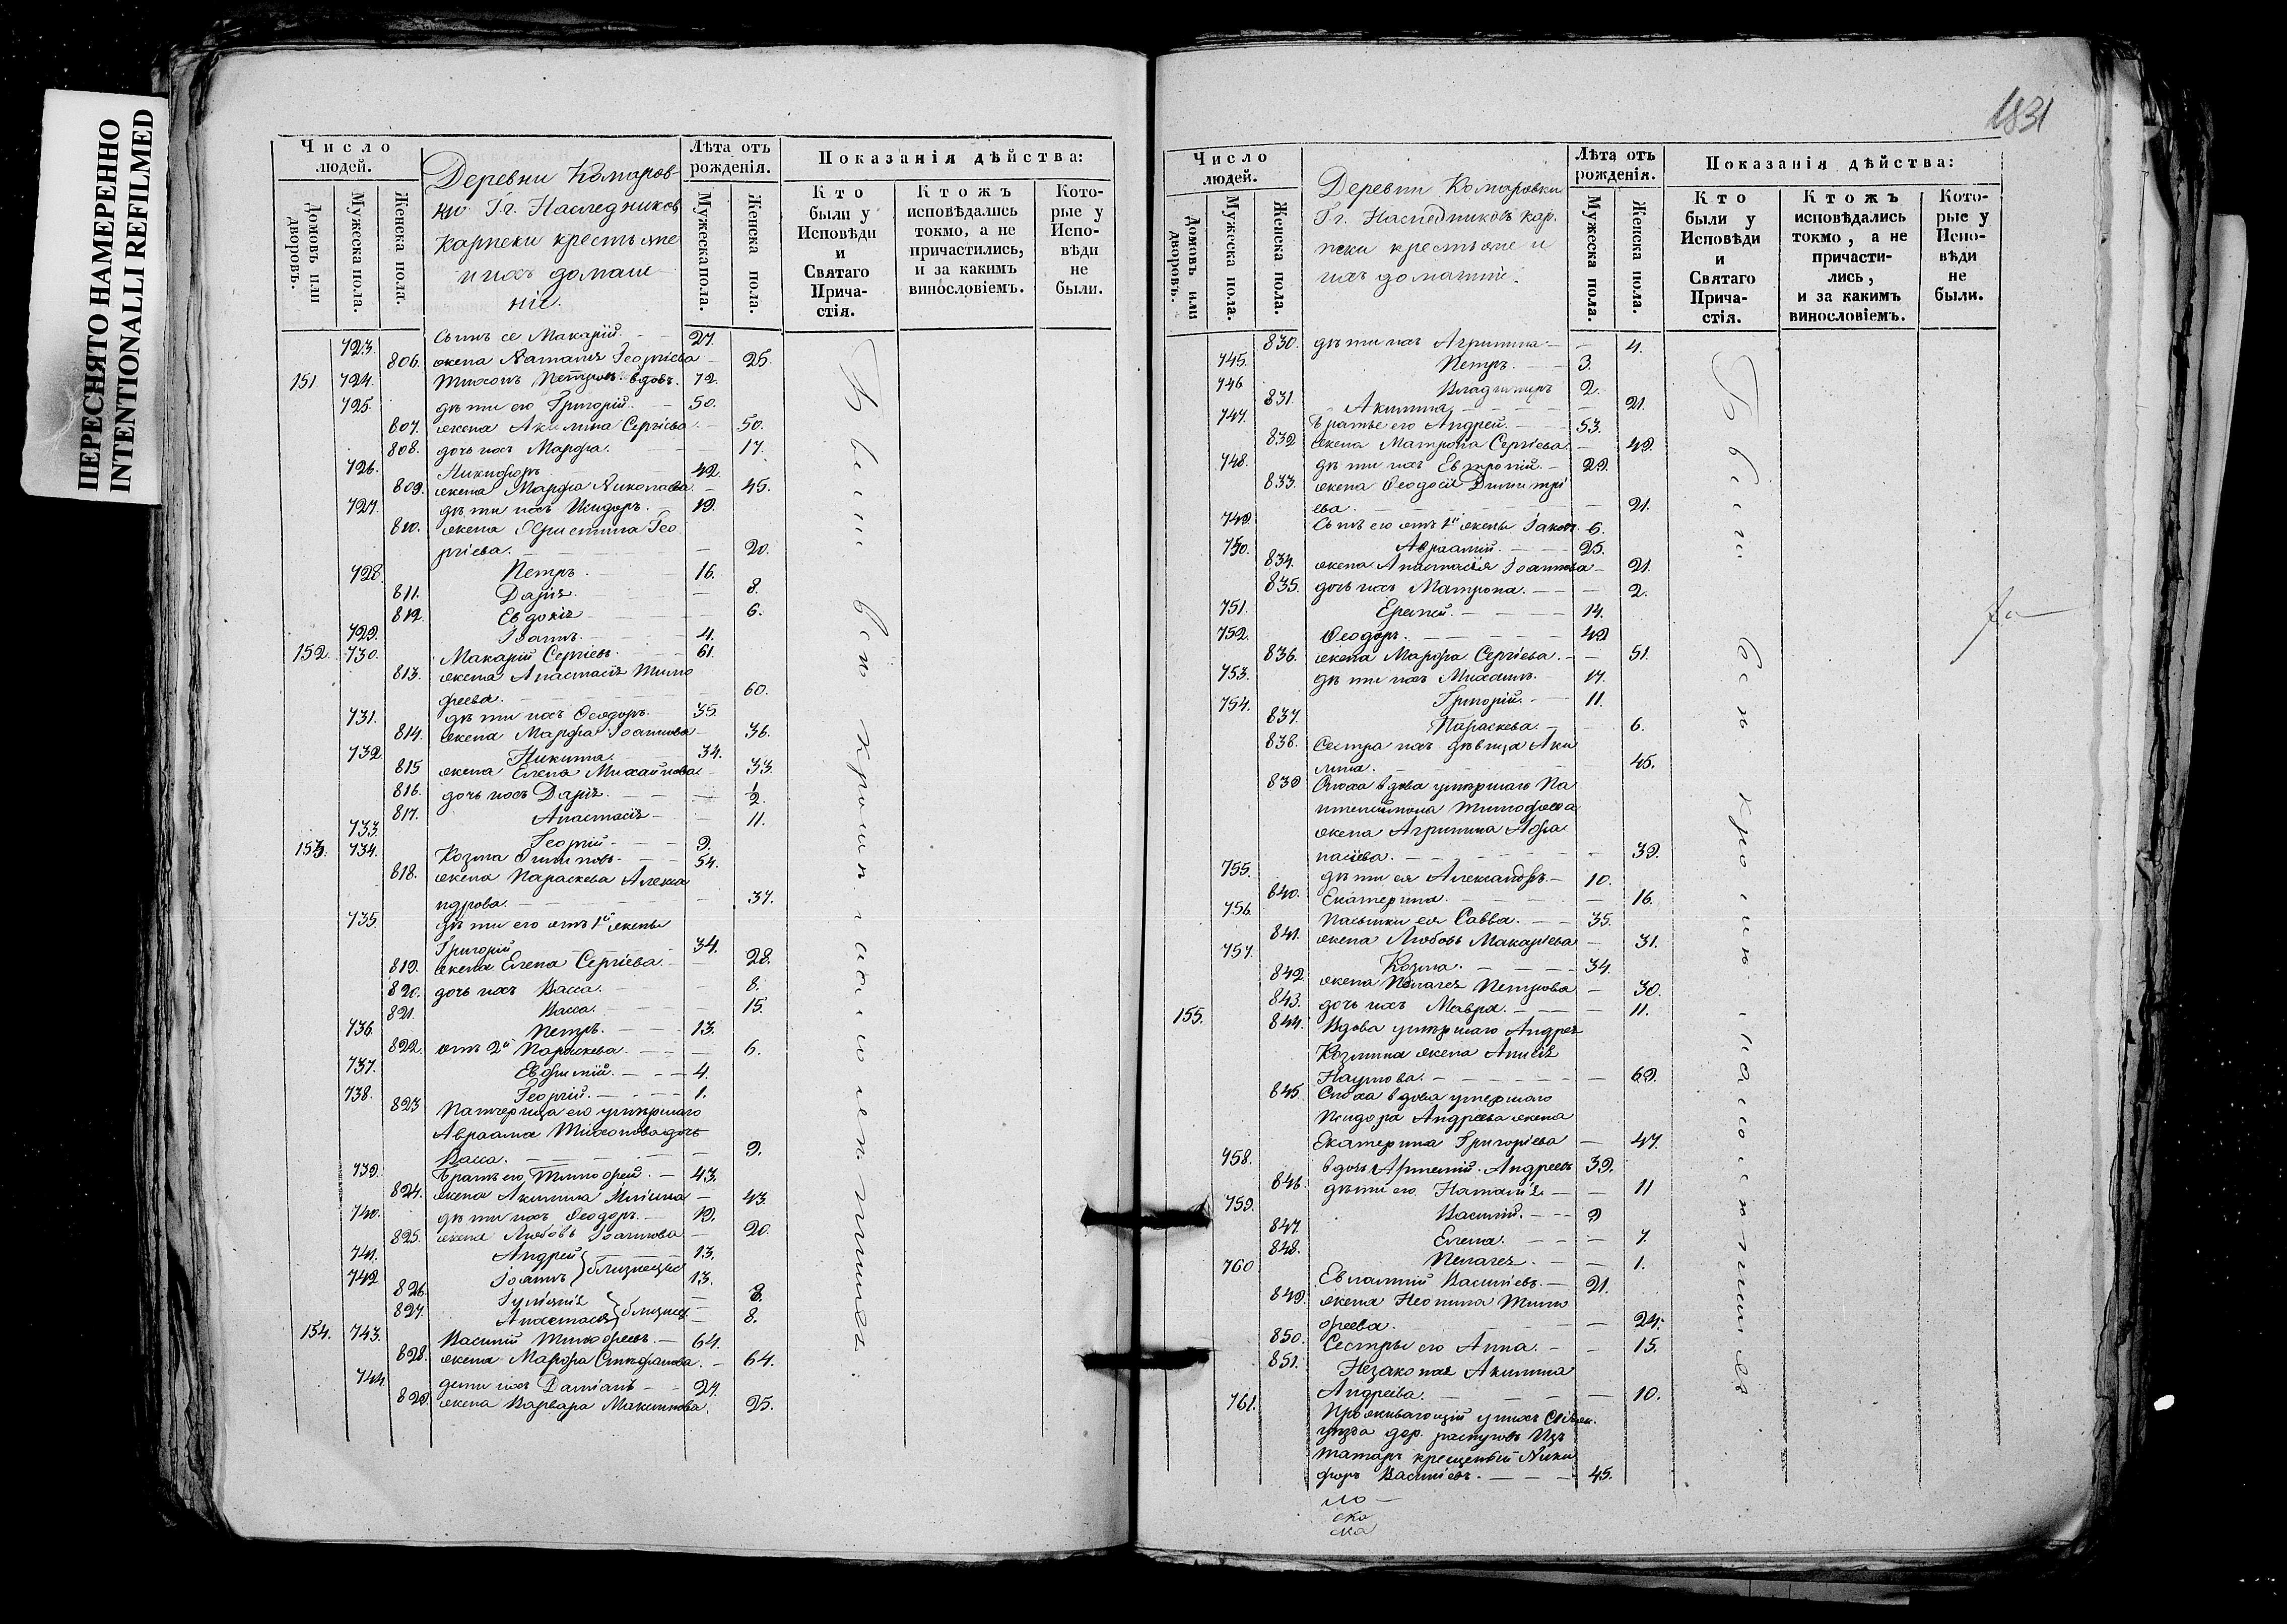 ПЕРЕСНЯТО НАМЕРЕННО
INTENTIONALLI REFILMED
Число людей.
Домовъ или дворовъ.
Мужеска пола.
Женска пола.
Деревни Комаров-
ки Гг. Наследниковъ
Карпеки крестьяне
и ихъ домаш-
ніе.
Лѣта отъ рожденія.
Мужеска пола.
Женска пола.
Показанія дѣйства:
Кто были у Исповѣди и Святаго Прича-стія.
Ктожъ исповѣдались токмо, а не причастились, и за какимъ винословіемъ.
Кото-рые у Испо-вѣди не были.
723. Сынъ ее Макарій 27.
806. жена Наталія Георгіева 25.
151 724. Тихонъ Петровъ вдовъ. 72.
725. дѣти его Григорій 50.
807. жена Акилина Сергіева 50.
808. дочь ихъ Марфа 17.
726. Никифоръ 42.
809. жена Марфа Николаева 45.
727. дѣти ихъ Исидоръ. 19.
810. жена Христина Гео
ргіева. 20.
728 Петръ 16.
811. Дарія 8.
812. Евдокія 6.
729. Іоаннъ 4.
152. 730. Макарій Сергіевъ 61.
813. жена Анастасія Тимо
феева 60.
731. дѣти ихъ Ѳеодоръ 35.
814. жена Марфа Іоаннова 36.
732 Никита 34.
815 жена Елена Михайлова 33.
816. дочь ихъ Дарія 1/2.
817. Анастасія 11.
733. Георгій 9.
153. 734. Козма 54.
818. жена Параскева Алекса
ндрова. 37.
735. дѣти его отъ 1й жены
Григорій 34.
819. жена Елена Сергіева 28.
820. дочь ихъ Васса. 8.
821. Васса. 15.
736. Петръ 13.
822. отъ 2й Параскева 6.
737. Евфимій 4.
738. Георгій 1.
823 Патчерица его умершаго
Авраама Тихонова дочь
Васса. 9.
739. Братъ его Тимофей 43.
824. жена Акилина 43.
740. дѣти ихъ Ѳеодоръ 19.
825. жена Любовь Іоаннова 20.
741. Андрей 13.
742 Іоаннъ } близнецы 13.
826. Іуліанія 8.
827. Анастасія } близнец 8.
154. 743. Василій Тимофеевъ 64.
828. жена Марфа Стефанова. 64.
744. дети ихъ Даміанъ 27.
829. жена Варвара Максимова. 25.
Были все кромѣ неисполнившихся
1831
Число людей.
Домовъ или дворовъ.
Мужеска пола.
Женска пола.
Деревни Комаровки
Гг. Наследниковъ Кар-
пеки крестьяне и
ихъ домашніе.
Лѣта отъ рожденія.
Мужеска пола.
Женска пола.
Показанія дѣйства:
Кто были у Исповѣди и Святаго Прича-стія.
Ктожъ исповѣдались токмо, а не причасти-лись, и за какимъ винословіемъ.
Кото-рые у Испо-вѣди не были.
830. дѣти ихъ Агрипина 4.
745. Петръ 3.
746 Владимиръ 2.
831. Акилина 21.
747. Братье его Андрей 53.
832 жена Матрона Сергіева 49.
748. дѣти ихъ Евтропій 29.
833. жена Ѳеодосія Димитрі
ева. 21.
749. Сынъ его отъ 1й жены Іаковъ 6.
750. Авраамій 25.
834. жена Анастасія Іоаннова 21.
835. дочь ихъ Матрона. 2.
751. 14.
752. Ѳеодоръ. 49
836. жена Марфа Сергіева 51.
753. дѣти ихъ Михаилъ 17.
754. Григорій 11.
837. Параскева 6.
838. Сестра ихъ дѣвица Аки
лина. 45.
839 Сноха вдова умершаго Па
нтелеимона Тимофеева
жена Агрипина Афа
насіева. 39.
755. дѣти ея Александръ 10.
840. Екатерина. 16.
756. Пасынки ея Савва. 35.
841. жена Любовь Макаріева 31.
757. Козма. 34.
842. жена Пелагея Петрова 30.
843. дочь ихъ Мавра. 11.
155. 844. Вдова умершаго Андрея
Козмина жена Анисія
Наумова. 69.
845. Сноха вдова умершаго
Исидора Андреева жена
Екатерина Григоріева 47.
758. вдовъ Артемій Андреевъ 39.
846. дѣти его Наталія 11
759. Василій 9
847. Елена. 7.
848. Пелагея 1.
760 Евлампій Василіевъ 21.
849. жена Неонила Тимо
феева. 24.
850. Сестры его Анна 15.
851. Незаконая Акилина
Андреева. 10.
761. Проживающій у нихъ
уѣзда дер. изъ
татаръ крещеный Ники
форъ Василіевъ. 45.
ло
ска
ма
Были все кромѣ неисполнившихся